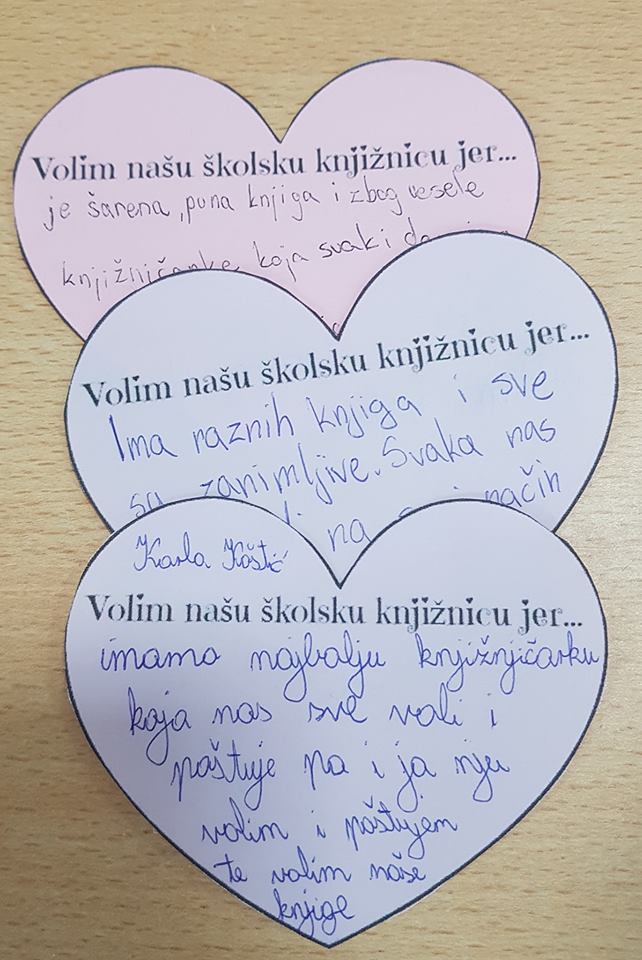 Volim našu školsku knjižnicu jer...
je šarena, puna knjiga i zbog vesele
knjižničarke koja svaki
Volim našu školsku knjižnicu jer...
Ima raznih knjiga i sve
su zanimljive. Svaka nas
na način
Karla Koštić
Volim našu školsku knjižnicu jer...
imamo najbolju knjižnjičarku
koja nas sve voli i
poštuje pa i ja nju
volim i poštujem
te volim naše
knjige